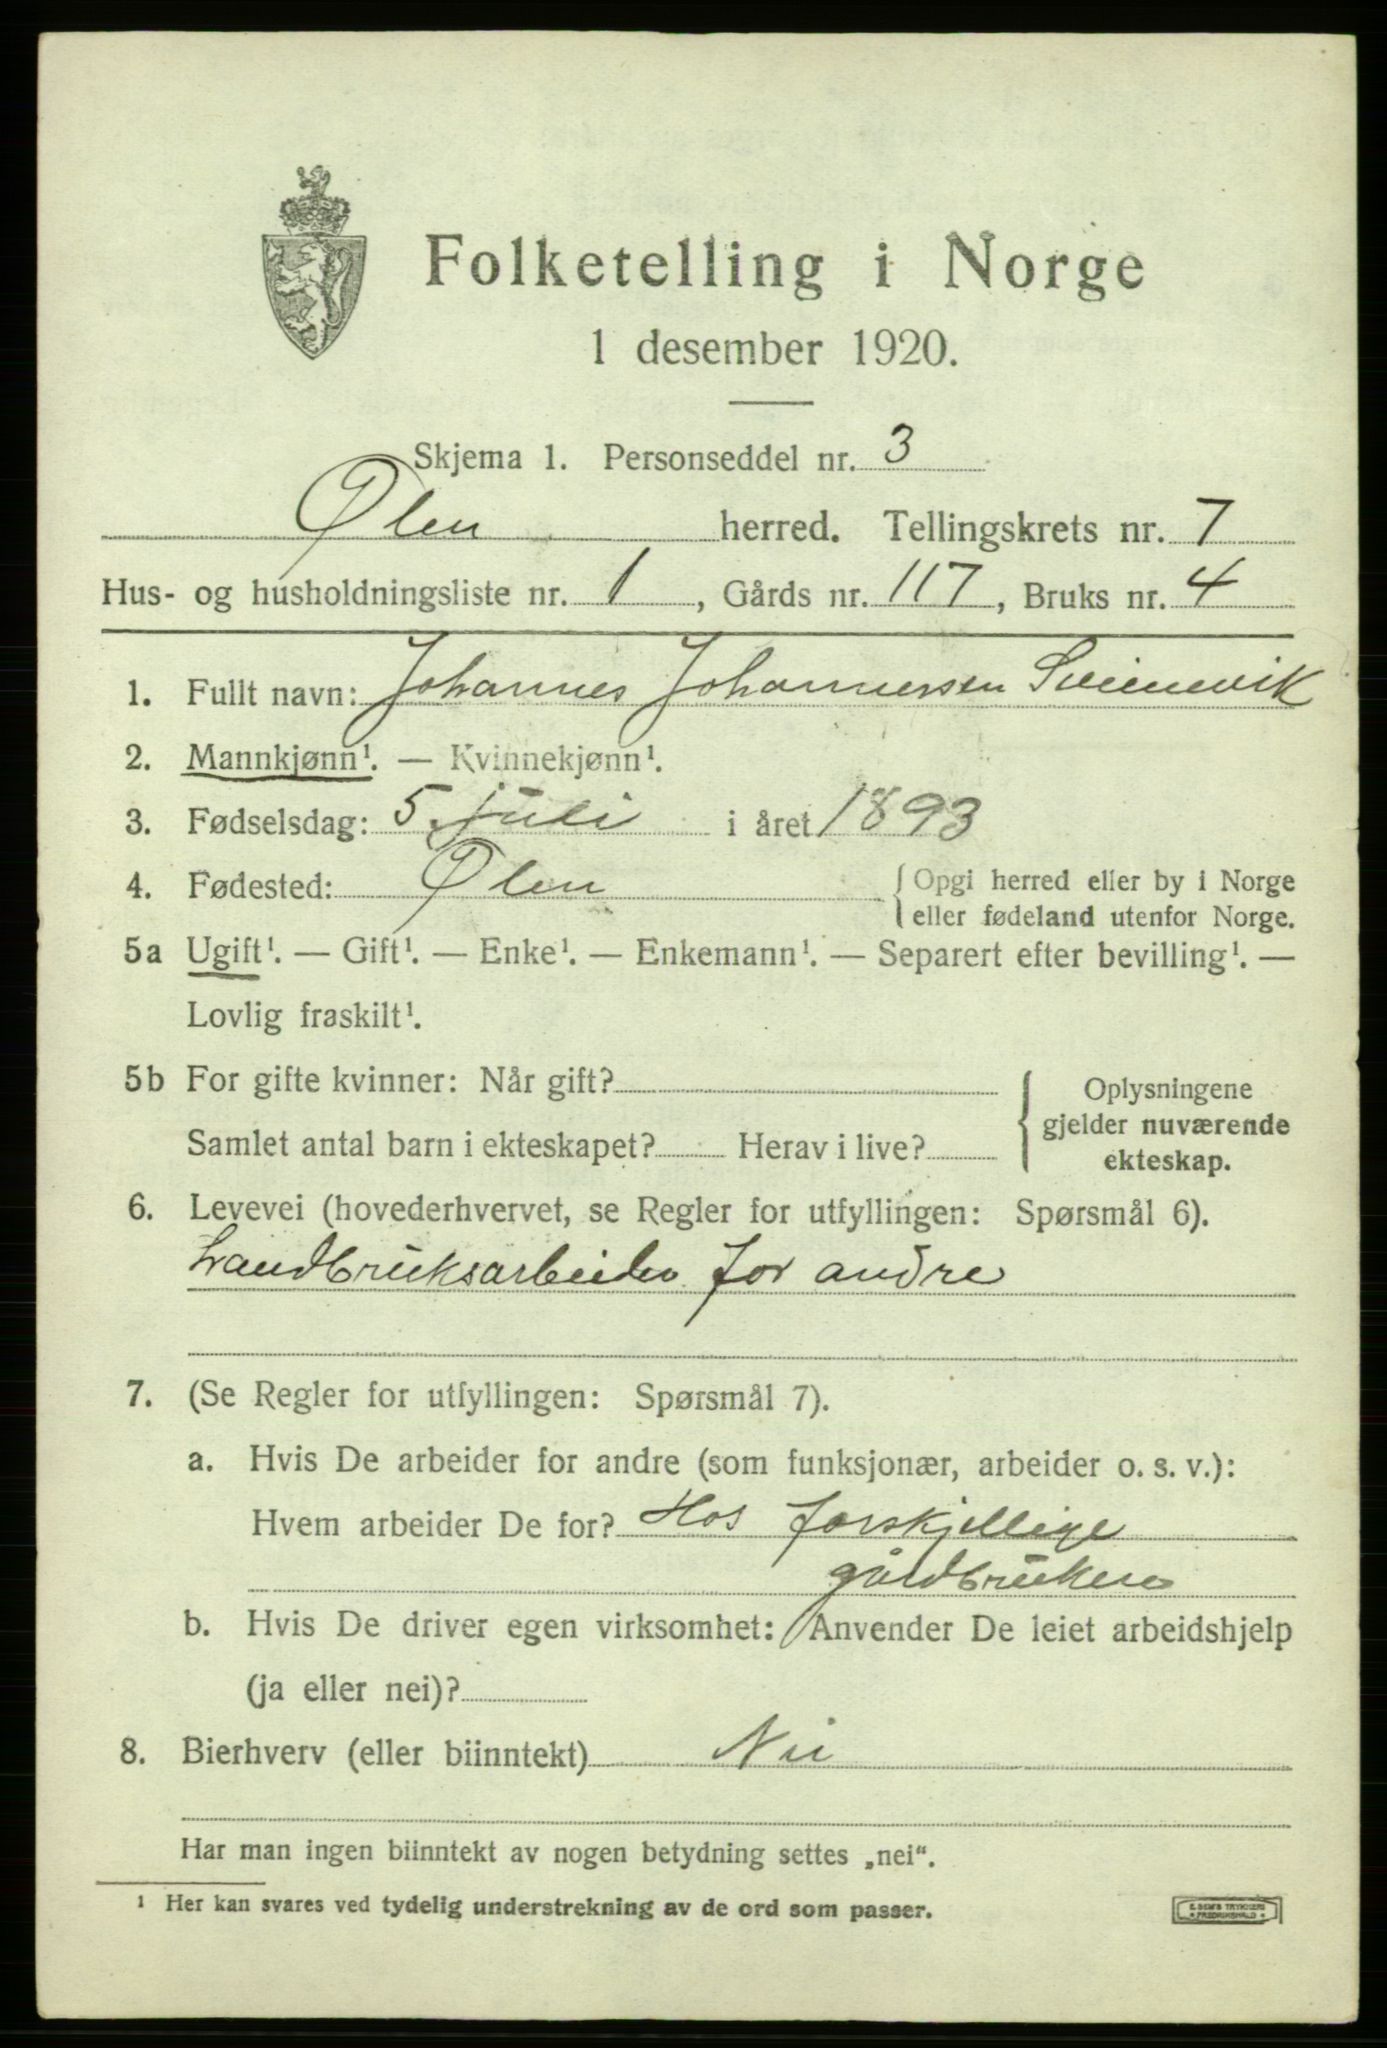 Folketelling i Norge
1 desember 1920.
Skjema 1. Personseddel nr. 3
Ølen herred. Tellingskrets nr. 7
Hus- og husholdningsliste nr. 1, Gårds nr. 117, Bruks nr. 4
1. Fullt navn: Johannes Johannessen
2. Mannkjønn¹. — Kvinnekjønn¹.
3. Fødselsdag: 5 juli i året 1893
4. Fødested: Ølen { Opgi herred eller by i Norge
eller fødeland utenfor Norge.
5a Ugift¹. — Gift¹. — Enke¹. — Enkemann¹. — Separert efter bevilling¹. —
Lovlig fraskilt¹.
5b For gifte kvinner: Når gift?
Samlet antal barn i ekteskapet? Herav i live?
{ Oplysningene
gjelder nuværende
ekteskap.
6. Levevei (hovederhvervet, se Regler for utfyllingen: Spørsmål 6).
Landbruksarbeider for andre
7. (Se Regler for utfyllingen: Spørsmål 7).
a. Hvis De arbeider for andre (som funksjonær, arbeider o. s. v.):
Hvem arbeider De for? Hos forskjellige
gårdbrukere
b. Hvis De driver egen virksomhet: Anvender De leiet arbeidshjelp
(ja eller nei)?
8. Bierhverv (eller biinntekt) Nei
Har man ingen biinntekt av nogen betydning settes „nei“.
¹ Her kan svares ved tydelig understrekning av de ord som passer.
E. SEM'S TRYKKERI
FREDRIKSHALD